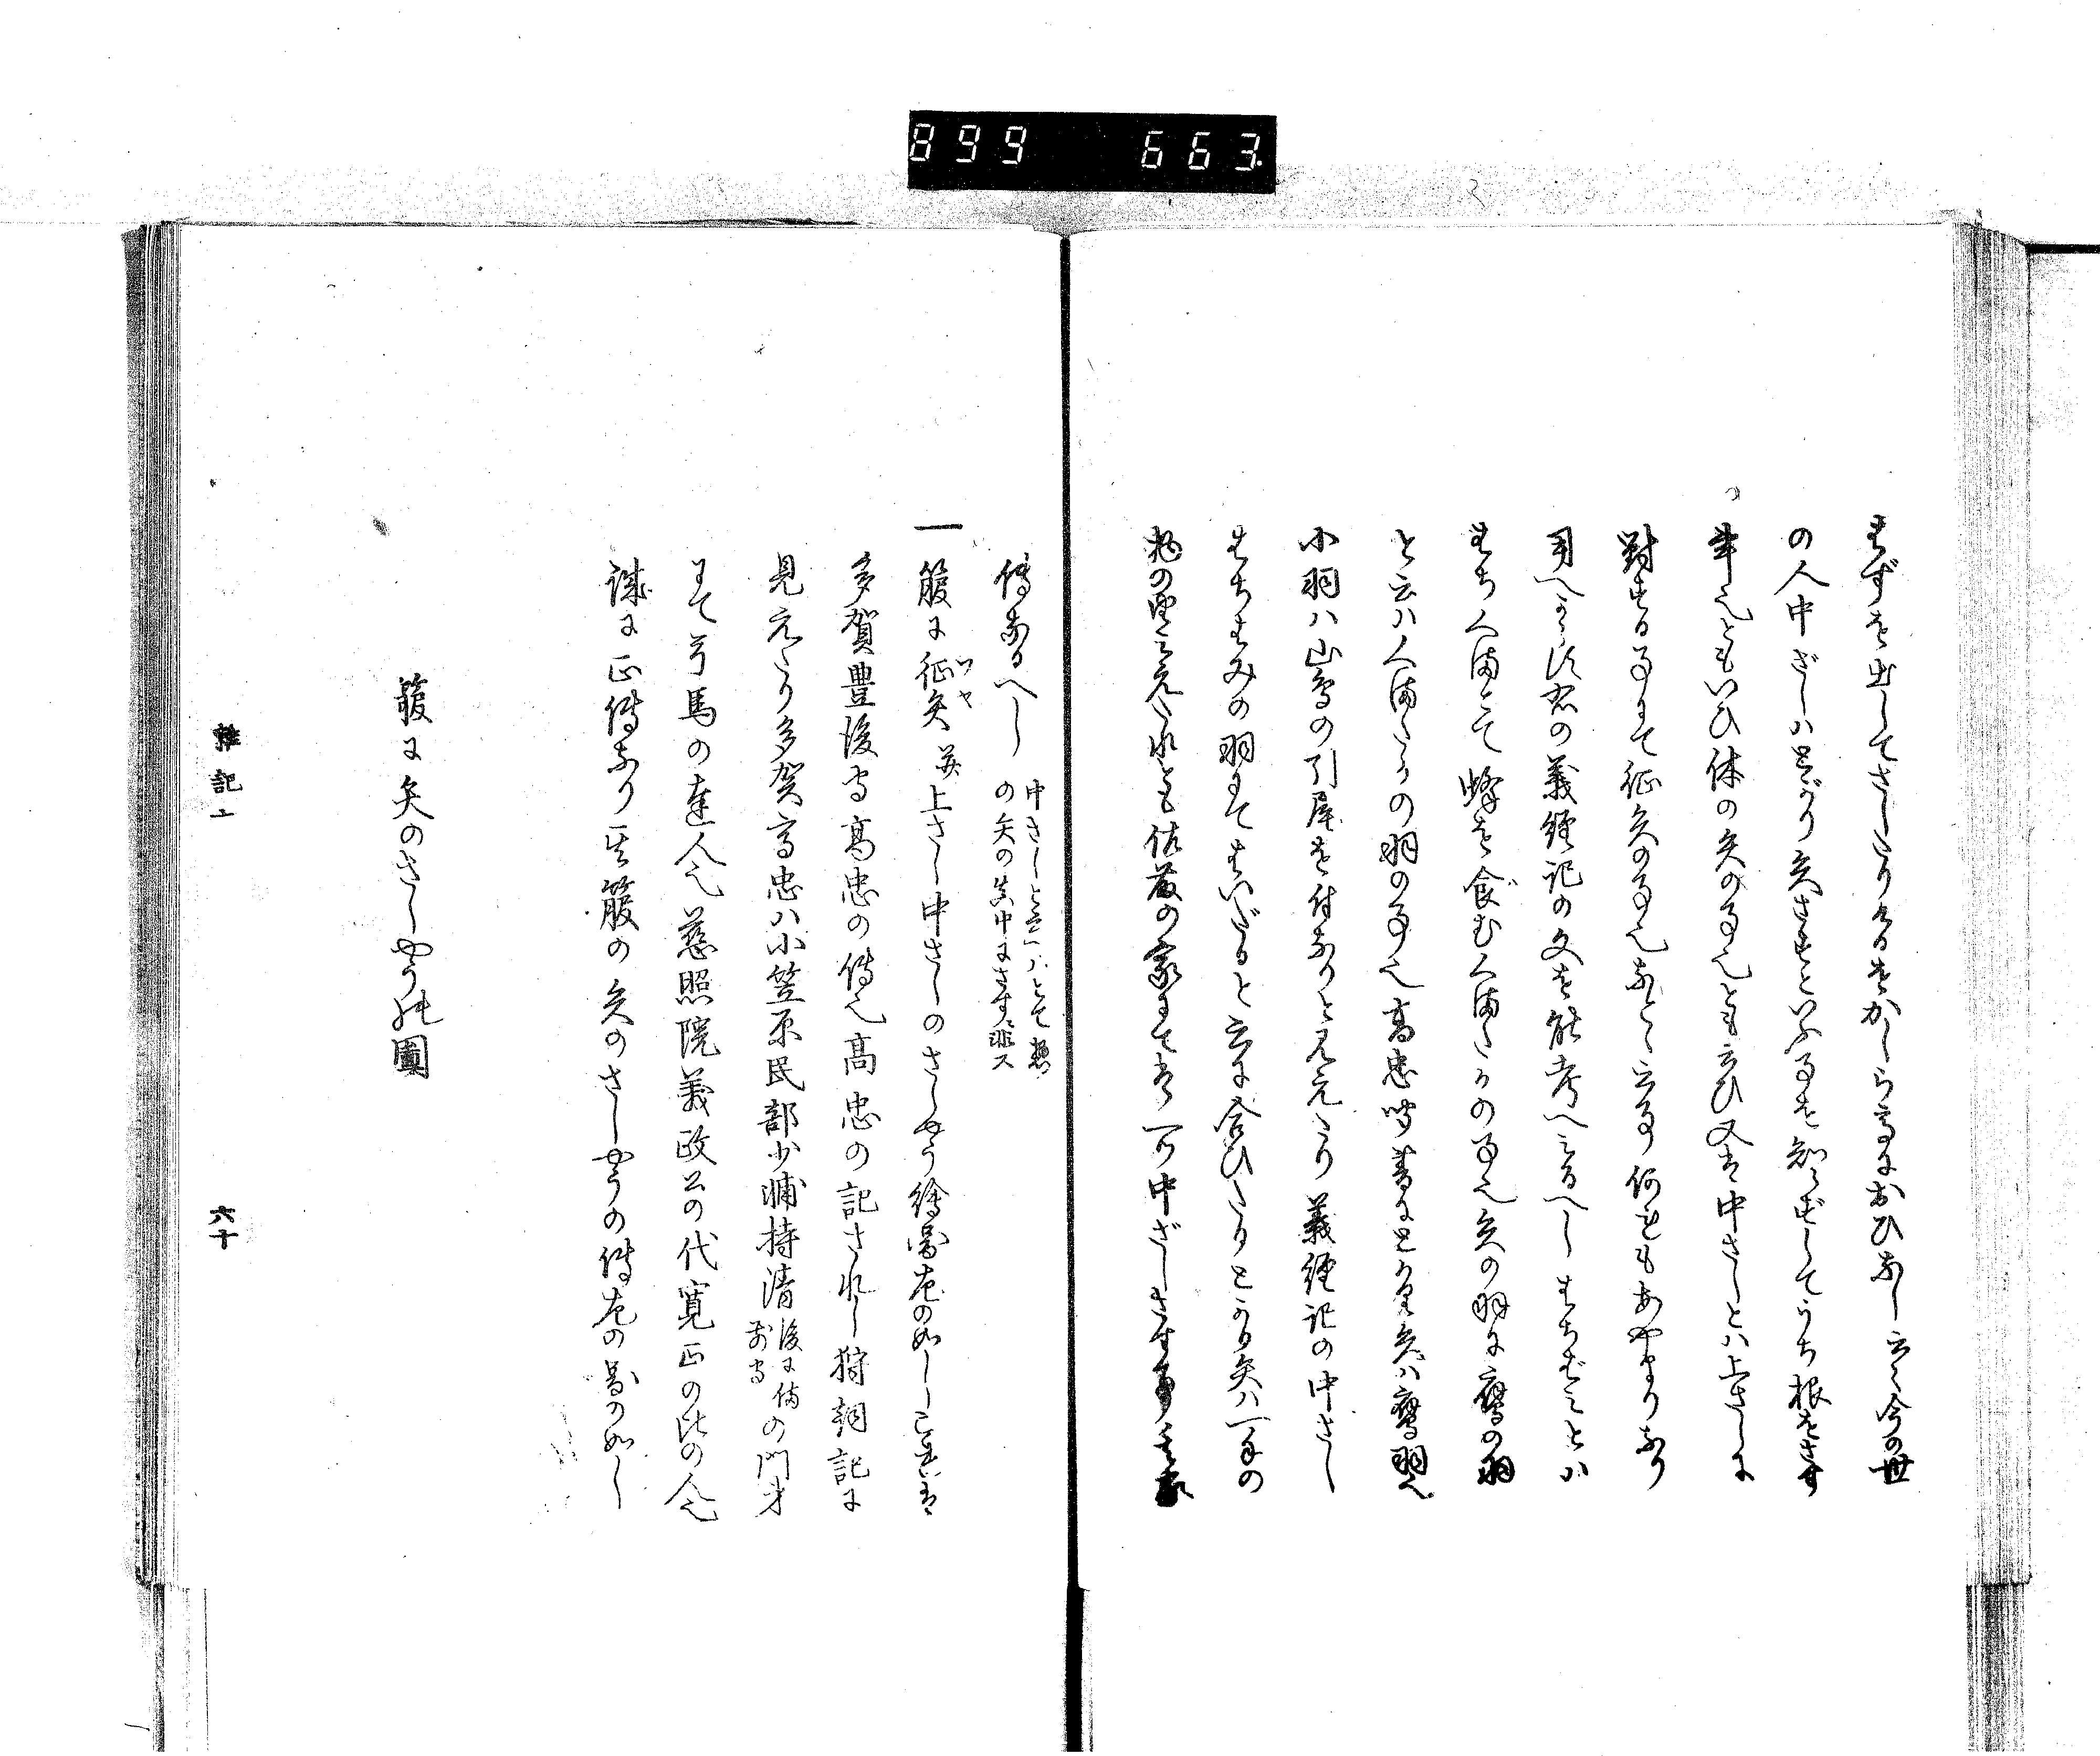 899 663.
はずを出してさしたりけるをかしら高におひなし云々今の世
の人中ざしハとがり矢さすといふ事を知らずしてうち根をさす
事也ともいひ休の矢の事也とも云ひ又は中さしとハ上さしに
對する事にて征矢の事也なとゝ云事何れもあやまりなり
用へからず右の義經記の文を能考へみるへしはちばミとハ
はちくまとて蜂を食むくまたかの事也矢の羽に鷹の羽
と云ハくまたかの羽の事也高忠聞書にとかり矢ハ鷹羽也
小羽ハ山鳥の引尾を付なりと見えたり義經記の中さし
はちはみの羽にてはいだると云に合ひたりとかり矢ハ一手の
物の里見えたれとも佐藤の家にては一ツ中ざしさす事
傳なるへし
中さしと云ハとて惣
の矢の真中にさす非ス
一箙に征矢ソヤ并上さし中さしのさしやう繪圖左の如し是は
多賀豊後守高忠の傳也高忠の記されし狩詞記に
見えたり多賀高忠ハ小笠原民部少輔持清後に備前守の門才
にて弓馬の達人也慈照院義政公の代寛正の比の人也
誠に正傳なり其箙の矢のさしやうの傳左の圖の如し
箙に矢のさしやう此圖
雜記十
六十